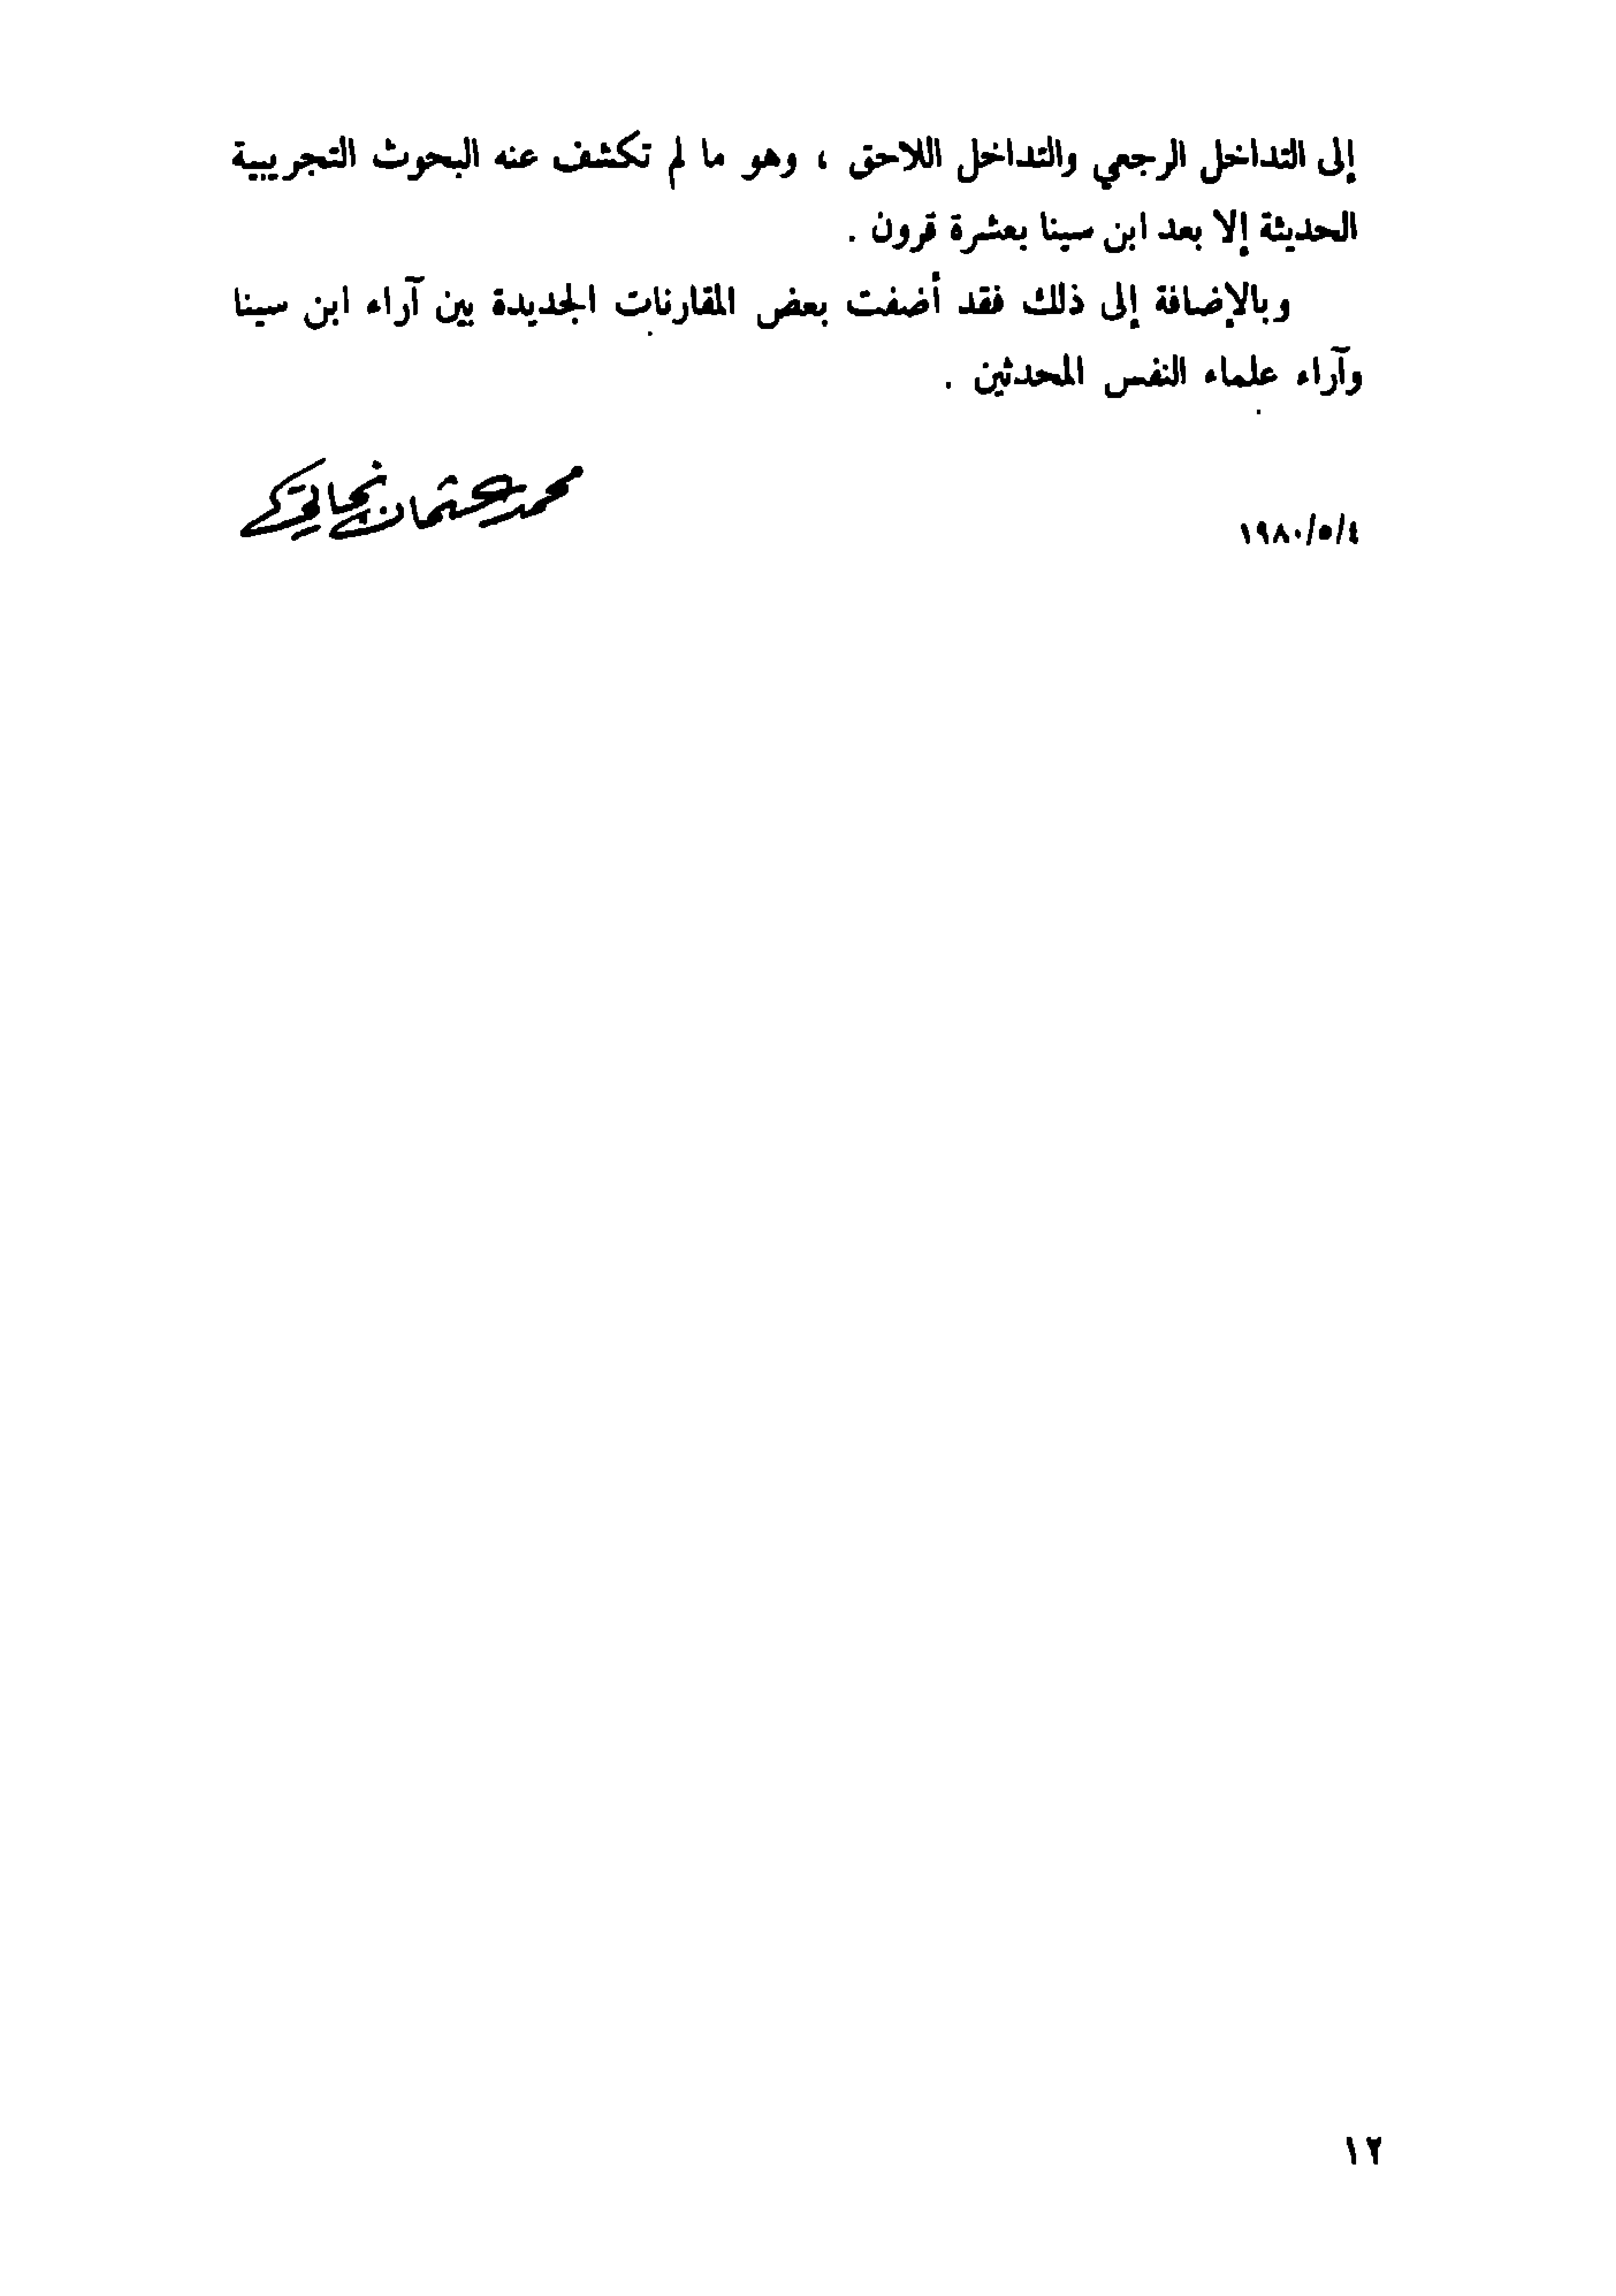 إلى التداخل الرجعي والتداخل اللاحق ، وهو ما لم تكشف عنه البحوث التجريبية
الحديثة إلا بعد ابن سينا بعشرة قرون .
وبالإضافة إلى ذلك فقد أضفت بعض المقارنات الجديدة بين آراء ابن سينا
وآراء علماء النفس المحدثين .
محمد عثمان نجاتي
١٩٨٠/٥/٤
١٢